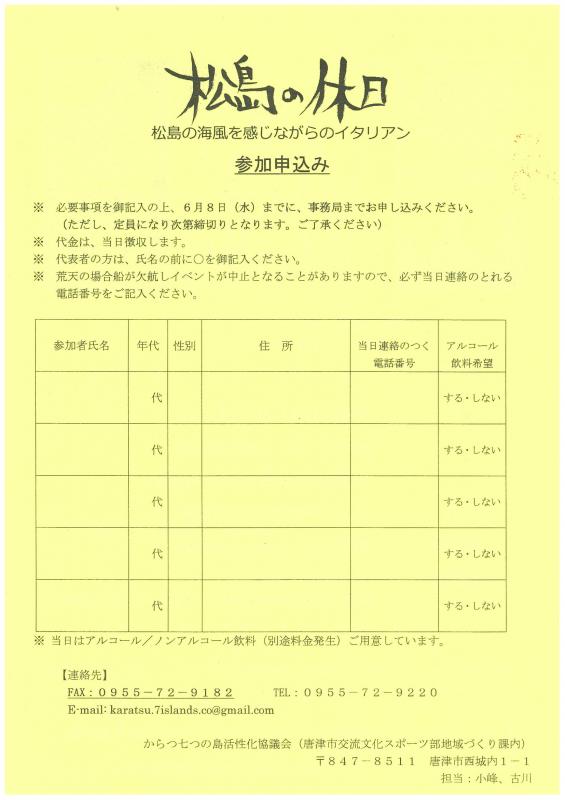 松島の休日
松島の海風を感じながらのイタリアン
参加申込み
※ 必要事項を御記入の上、６月８日（水）までに、事務局までお申し込みください。
（ただし、定員になり次第締切りとなります。ご了承ください）
※ 代金は、当日徴収します。
※ 代表者の方は、氏名の前に○を御記入ください。
※ 荒天の場合船が欠航しイベントが中止となることがありますので、必ず当日連絡のとれる
電話番号をご記入ください。
参加者氏名 年代 性別 住 所 当日連絡のつく電話番号 アルコール飲料希望
代 する・しない
代 する・しない
代 する・しない
代 する・しない
代 する・しない
※ 当日はアルコール／ノンアルコール飲料（別途料金発生）ご用意しています。
【連絡先】
FAX：０９５５－７２－９１８２ TEL：０９５５－７２－９２２０
E-mail: karatsu.7islands.co@gmail.com
からつ七つの島活性化協議会（唐津市交流文化スポーツ部地域づくり課内）
〒８４７－８５１１ 唐津市西城内１－１
担当：小峰、古川